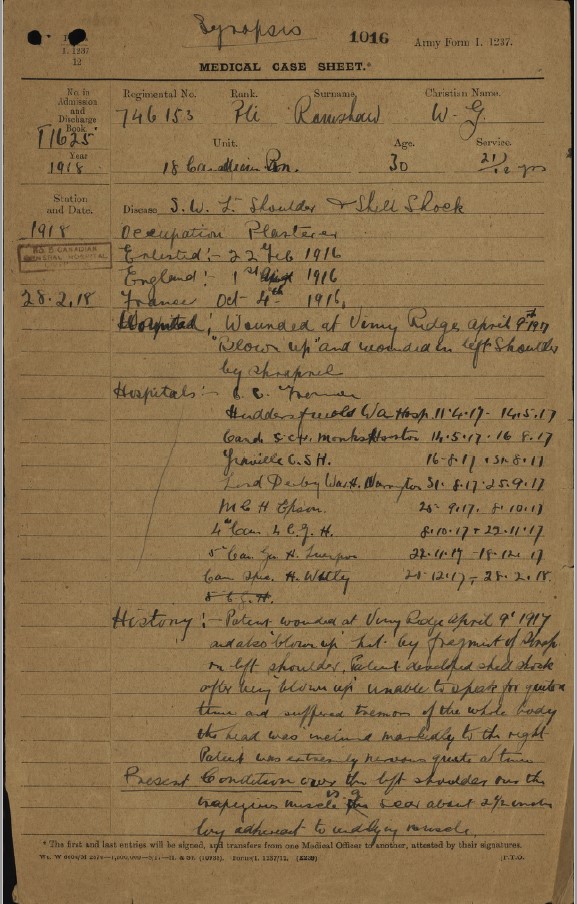 Synopsis
1016
Army Form I. 1237.
I. 1237
12
MEDICAL CASE SHEET.*
No. in Admission and Discharge Book
T1625
Year
1918
Regimental No. Rank. Surname. Christian Name.
746153 Pte Ramshaw W. G.
Unit. Age. Service.
18 Bn. 30 yrs
Station and Date.
1918
Disease S. W. L. Shoulder & Shell Shock
Occupation Plasterer
No. 5 CANADIAN
GENERAL HOSPITAL
Enlisted :- 22 Feb 1916
England :- 1st 1916
28.2.18
France Oct 4th 1916.
Wounded at Vimy Ridge April 9th 1917
"Blown up" and wounded in left Shoulder
by shrapnel
Hospitals :-
Huddersfield War Hosp. 11.4.17 - 14.5.17
Monks Horton 14.5.17 - 16.8.17
Granville C.S.H. 16-8-17 - 31-8-17
Lord Derby War H. Warrington 31.8.17 - 25.9.17
M C H Epsom. 25-9.17 - 8.10.17
4th Can. G. H. 8.10.17 - 22.11.17
5th Can. Gen H. Liverpool 22.11.17 - 18.12.17
Can Spec. H. Witley .12.17 - 28.2.18.
5 C G. H.
History :- Patient wounded at Vimy Ridge April 9th 1917
and also "blown up" hit by fragment of Shrap
on left shoulder. Patient developed shell shock
after being "blown up" unable to speak for quite a
time and suffered tremors of the whole body
the head was inclined markedly to the right
Patient was extremely nervous quite a time
Present Condition over the left shoulder over the
trapezius muscle is a scar about 2½ inches
long adherent to underlying muscle.
* The first and last entries will be signed, and transfers from one Medical Officer to another, attested by their signatures.
Forms/I. 1237/12.
[P.T.O.